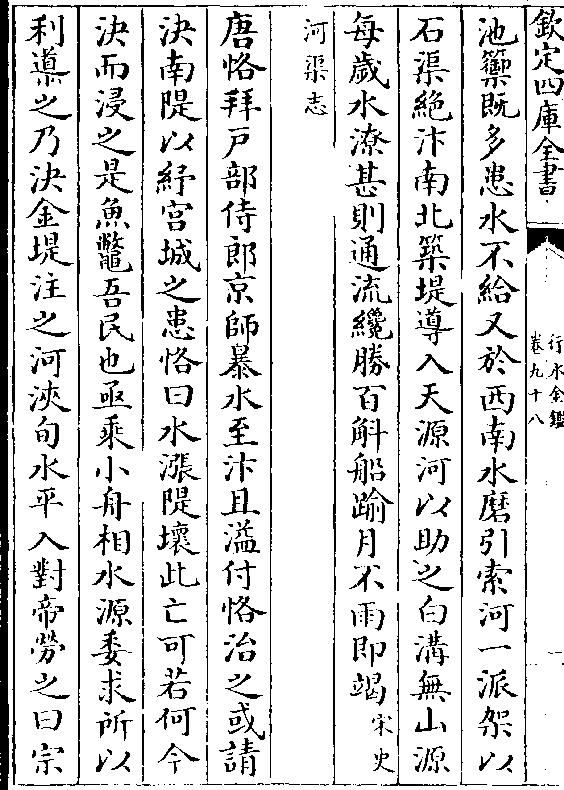 欽定四庫全書
行水金鑑
卷九十八
池籞既多患水不給又於西南水磨引索河一派架以
石渠絶汴南北築堤導入天源河以助之白溝無山源
每歲水潦甚則通流纔勝百斛船踰月不雨即竭宋史
河渠志
唐恪拜戸部侍郎京師暴水至汴且溢付恪治之或請
決南隄以紓宫城之患恪曰水漲隄壞此亡可若何今
決而浸之是魚鼈吾民也亟乘小舟相水源委求所以
利導之乃決金堤注之河浹旬水平入對帝勞之曰宗